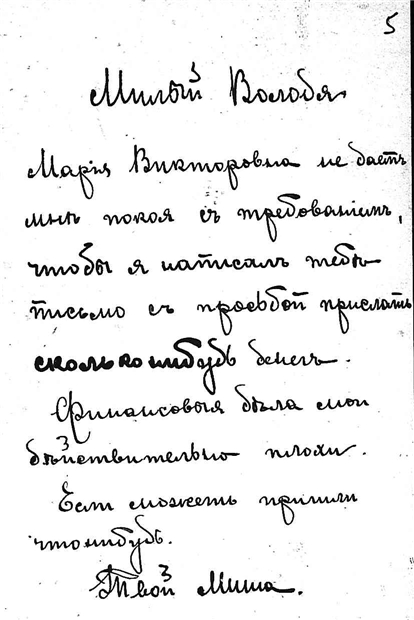 5
Милый Володя
Марія Викторовна не даетъ
мнѣ покоя съ требованіемъ,
чтобы я написалъ тебѣ
письмо съ просьбой прислать
сколько нибудь денегъ.
Финансовыя дѣла мои
дѣйствительно плохи.
Если можешь пришли
что нибудь.
Твой Миша.